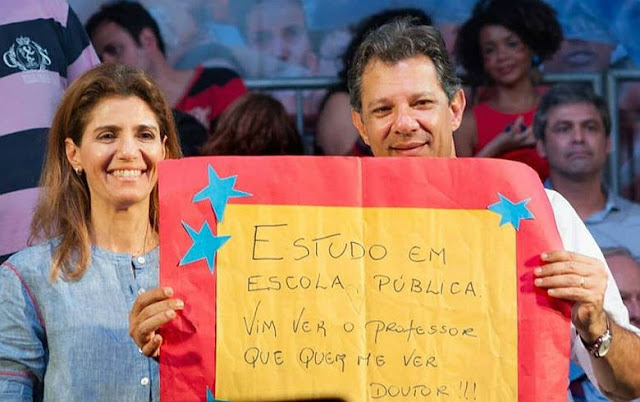 ESTUDO EM
ESCOLA, PÚBLICA.
VIM VER O PROFESSOR
QUE QUER ME VER
DOUTOR!!!